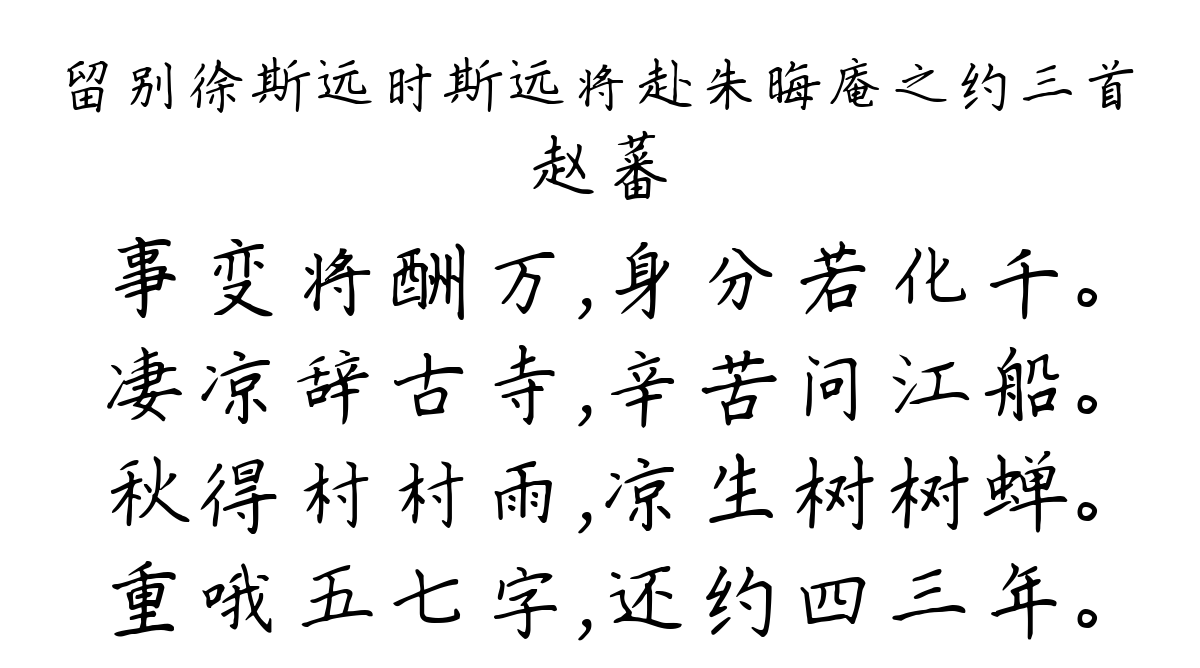 留别徐斯远时斯远将赴朱晦庵之约三首
赵蕃
事变将酬万,身分若化千。
凄凉辞古寺,辛苦问江船。
秋得村村雨,凉生树树蝉。
重哦五七字,还约四三年。